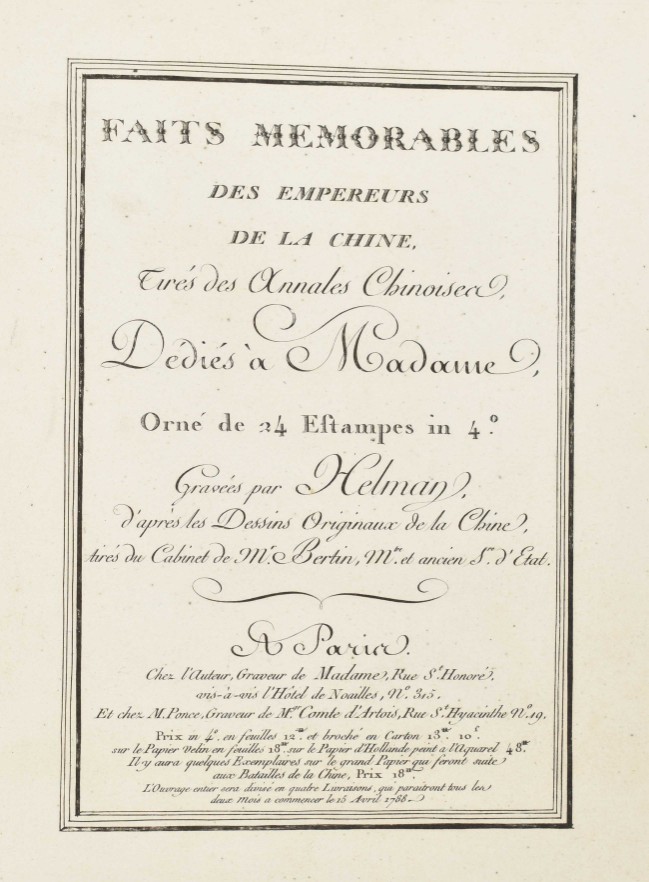 FAITS MEMORABLES
DES EMPEREURS
DE LA CHINE,
Tirés des Annales Chinoises,
Dédiés à Madame,
Orné de 24 Eſtampes in 4.º
Gravées par Helman,
d'après les Dessins Originaux de la Chine,
tirés du Cabinet de M.r Bertin, M.tre et ancien S.re d'Etat.
A Paris.
Chez l'Auteur, Graveur de Madame, Rue S.t Honoré,
vis-à-vis l'Hôtel de Noailles, N.º 315.
Et chez M. Ponce, Graveur de M.gr Comte d'Artois, Rue S.t Hyacinthe N.º 19.
Prix in 4.º en feuilles 12.tt et broché en Carton 13.tt 10.s
sur le Papier Velin en feuilles 18.tt sur le Papier d'Hollande peint a l'Aquarel 48.tt
Il y aura quelques Exemplaires sur le grand Papier qui feront suite
aux Batailles de la Chine, Prix 18.tt
L'Ouvrage entier sera divisé en quatre Livraisons, qui paraitront tous les
deux mois a commencer le 15 Avril 1788.